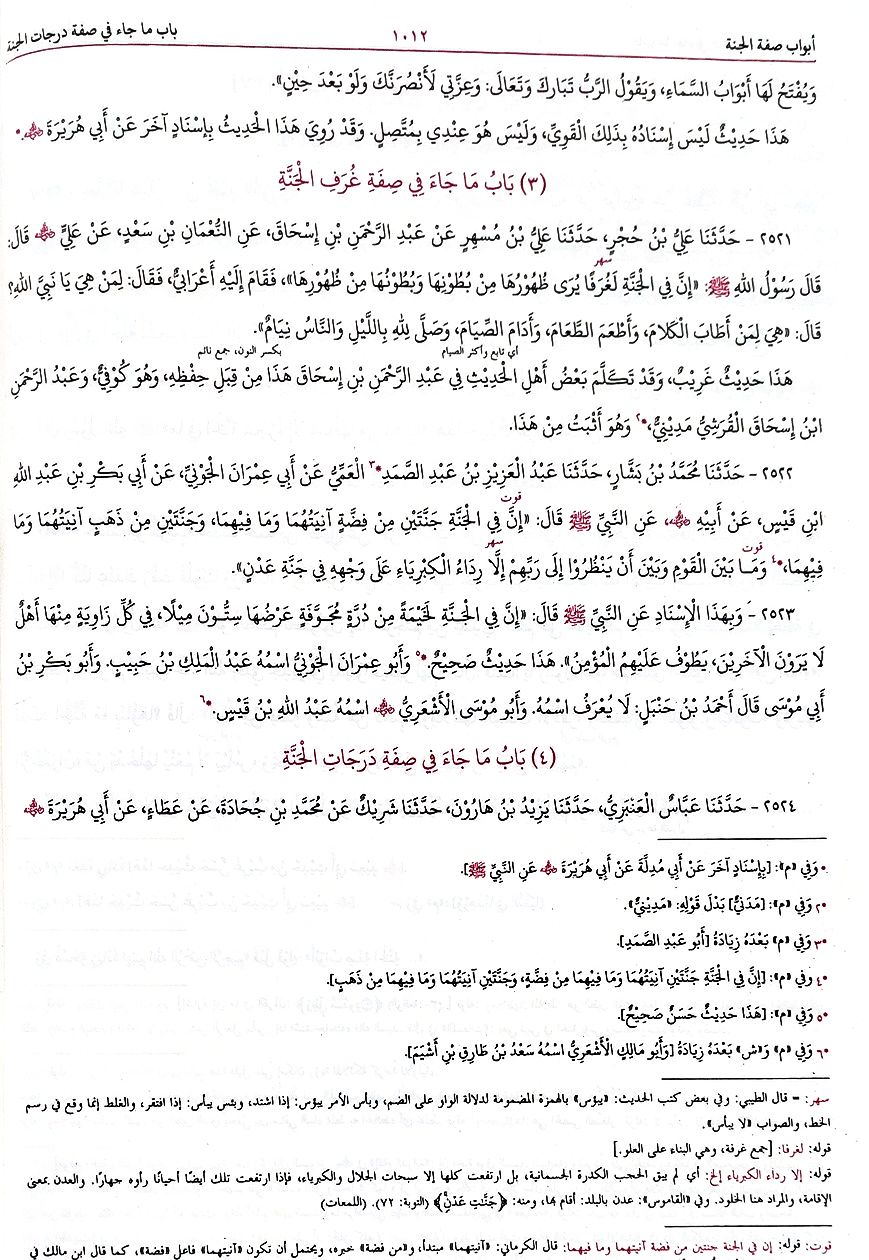 أبواب صفة الجنة ١٠١٢ باب ما جاء في صفة درجات الجنة
وَيُفْتَحُ لَهَا أَبْوَابُ السَّمَاءِ، وَيَقُولُ الرَّبُّ تَبَارَكَ وَتَعَالَى: وَعِزَّتِي لَأَنْصُرَنَّكَ وَلَوْ بَعْدَ حِيْنٍ».
هَذَا حَدِيْثٌ لَيْسَ إِسْنَادُهُ بِذَلِكَ الْقَوِيِّ، وَلَيْسَ هُوَ عِنْدِي بِمُتَّصِلٍ. وَقَدْ رُوِيَ هَذَا الْحَدِيْثُ بِإِسْنَادٍ آخَرَ عَنْ أَبِي هُرَيْرَةَ ﵁.•
(٣) بَابُ مَا جَاءَ فِي صِفَةِ غُرَفِ الْجَنَّةِ
٢٥٢١ - حَدَّثَنَا عَلِيُّ بْنُ حُجْرٍ، حَدَّثَنَا عَلِيُّ بْنُ مُسْهِرٍ عَنْ عَبْدِ الرَّحْمَنِ بْنِ إِسْحَاقَ، عَنِ النُّعْمَانِ بْنِ سَعْدٍ، عَنْ عَلِيٍّ ﵁ قَالَ:
سهر
قَالَ رَسُوْلُ اللهِ ﷺ: «إِنَّ فِي الْجَنَّةِ لَغُرَفًا يُرَى ظُهُوْرُهَا مِنْ بُطُوْنِهَا وَبُطُوْنُهَا مِنْ ظُهُوْرِهَا»، فَقَامَ إِلَيْهِ أَعْرَابِيٌّ، فَقَالَ: لِمَنْ هِيَ يَا نَبِيَّ اللهِ؟
قَالَ: «هِيَ لِمَنْ أَطَابَ الْكَلَامَ، وَأَطْعَمَ الطَّعَامَ، وَأَدَامَ الصِّيَامَ، وَصَلَّى لِلهِ بِاللَّيْلِ وَالنَّاسُ نِيَامٌ».
أي تابع وأكثر الصيام بكسر النون، جمع نائم
هَذَا حَدِيْثٌ غَرِيْبٌ، وَقَدْ تَكَلَّمَ بَعْضُ أَهْلِ الْحَدِيْثِ فِي عَبْدِ الرَّحْمَنِ بْنِ إِسْحَاقَ هَذَا مِنْ قِبَلِ حِفْظِهِ، وَهُوَ كُوْفِيٌّ، وَعَبْدُ الرَّحْمَنِ
ابْنُ إِسْحَاقَ الْقُرَشِيُّ مَدِيْنِيٌّ،•٢ وَهُوَ أَثْبَتُ مِنْ هَذَا.
٢٥٢٢ - حَدَّثَنَا مُحَمَّدُ بْنُ بَشَّارٍ، حَدَّثَنَا عَبْدُ الْعَزِيْزِ بْنُ عَبْدِ الصَّمَدِ•٣ الْعَمِّيُّ عَنْ أَبِي عِمْرَانَ الْجَوْنِيِّ، عَنْ أَبِي بَكْرِ بْنِ عَبْدِ اللهِ
قوت
ابْنِ قَيْسٍ، عَنْ أَبِيْهِ ﵁، عَنِ النَّبِيِّ ﷺ قَالَ: «إِنَّ فِي الْجَنَّةِ جَنَّتَيْنِ مِنْ فِضَّةٍ آنِيَتُهُمَا وَمَا فِيْهِمَا، وَجَنَّتَيْنِ مِنْ ذَهَبٍ آنِيَتُهُمَا وَمَا
قوت سهر
فِيْهِمَا،•٤ وَمَا بَيْنَ الْقَوْمِ وَبَيْنَ أَنْ يَنْظُرُوْا إِلَى رَبِّهِمْ إِلَّا رِدَاءُ الْكِبْرِيَاءِ عَلَى وَجْهِهِ فِي جَنَّةِ عَدْنٍ».
٢٥٢٣ - وَبِهَذَا الْإِسْنَادِ عَنِ النَّبِيِّ ﷺ قَالَ: «إِنَّ فِي الْجَنَّةِ لَخَيْمَةً مِنْ دُرَّةٍ مُجَوَّفَةٍ عَرْضُهَا سِتُّوْنَ مِيْلًا، فِي كُلِّ زَاوِيَةٍ مِنْهَا أَهْلٌ
لَا يَرَوْنَ الْآخَرِيْنَ، يَطُوْفُ عَلَيْهِمُ الْمُؤْمِنُ». هَذَا حَدِيْثٌ صَحِيْحٌ.•٥ وَأَبُو عِمْرَانَ الْجَوْنِيُّ اسْمُهُ عَبْدُ الْمَلِكِ بْنُ حَبِيْبٍ. وَأَبُو بَكْرِ بْنُ
أَبِي مُوْسَى قَالَ أَحْمَدُ بْنُ حَنْبَلٍ: لَا يُعْرَفُ اسْمُهُ. وَأَبُو مُوْسَى الْأَشْعَرِيُّ ﵁ اسْمُهُ عَبْدُ اللهِ بْنُ قَيْسٍ.•٦
(٤) بَابُ مَا جَاءَ فِي صِفَةِ دَرَجَاتِ الْجَنَّةِ
٢٥٢٤ - حَدَّثَنَا عَبَّاسٌ الْعَنْبَرِيُّ، حَدَّثَنَا يَزِيْدُ بْنُ هَارُوْنَ، حَدَّثَنَا شَرِيْكٌ عَنْ مُحَمَّدِ بْنِ جُحَادَةَ، عَنْ عَطَاءٍ، عَنْ أَبِي هُرَيْرَةَ ﵁
• وَفِي «م»: [بِإِسْنَادٍ آخَرَ عَنْ أَبِي مُدِلَّةَ عَنْ أَبِي هُرَيْرَةَ ﵁ عَنِ النَّبِيِّ ﷺ].
•٢ وَفِي «م»: [مَدَنِيٌّ] بَدَلَ قَوْلِهِ: «مَدِيْنِيٌّ».
•٣ وَفِي «م» بَعْدَهُ زِيَادَةُ [أَبُو عَبْدِ الصَّمَدِ].
•٤ وَفِي «م»: [إِنَّ فِي الْجَنَّةِ جَنَّتَيْنِ آنِيَتُهُمَا وَمَا فِيْهِمَا مِنْ فِضَّةٍ، وَجَنَّتَيْنِ آنِيَتُهُمَا وَمَا فِيْهِمَا مِنْ ذَهَبٍ].
•٥ وَفِي «م»: [هَذَا حَدِيْثٌ حَسَنٌ صَحِيْحٌ].
•٦ وَفِي «م» وَ«ش» بَعْدَهُ زِيَادَةُ [وَأَبُو مَالِكٍ الْأَشْعَرِيُّ اسْمُهُ سَعْدُ بْنُ طَارِقِ بْنِ أَشْيَمَ].
سهر: = قال الطيبي: وفي بعض كتب الحديث: «يبؤس» بالهمزة المضمومة لدلالة الواو على الضم، وبأس الأمر يبؤس: إذا اشتد، وبئس يبأس: إذا افتقر، والغلط إنما وقع في رسم
الخط، والصواب «لا يبأس».
قوله: لغرفا: [جمع غرفة، وهي البناء على العلو.]
قوله: إلا رداء الكبرياء إلخ: أي لم يبق الحجب الكدرة الجسمانية، بل ارتفعت كلها إلا سبحات الجلال والكبرياء، فإذا ارتفعت تلك أيضًا أحيانًا رأوه جهارًا. والعدن بمعنى
الإقامة، والمراد هنا الخلود. وفي «القاموس»: عدن بالبلد: أقام بها، ومنه: ﴿جَنَّٰتِ عَدْنٍ﴾ (التوبة: ٧٢). (اللمعات)
قوت: قوله: إن في الجنة جنتين من فضة آنيتهما وما فيهما: قال الكرماني: «آنيتهما» مبتدأ، و«من فضة» خبره، ويحتمل أن تكون «آنيتهما» فاعل «فضة»، كما قال ابن مالك في